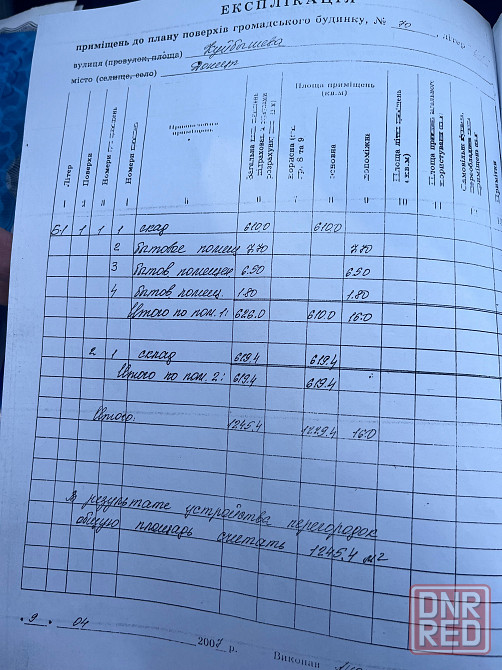 ЕКСПЛІКАЦІЯ
приміщень до плану поверхів громадського будинку, № 70, літер
вулиця (провулок, площа) Куйбышева
місто (селище, село) Донецк
Літер
Поверхи
Номери
Номери
Призначення приміщень
Загальна
Площа приміщень (кв.м)
Корисна
гр. 8 та 9
основна
допоміжна
Площа літніх приміщень (кв.м)
Площа
користування
Самовільно
приміщення
Примітки
Б1 1 1 1 склад 610.0 610.0
2 бытовое помещ 7.70 7.70
3 бытов помещен 6.50 6.50
4 бытов помещ. 1.80 1.80
Итого по пом. 1: 626.0 610.0 16.0
2 1 склад 619.4 619.4
Итого по пом. 2: 619.4 619.4
Итого: 1245.4 1229.4 16.0
В результате устройства перегородок
общую площадь считать 1245.4 м2
9 04 2007 р.
Виконав
DNR
RED